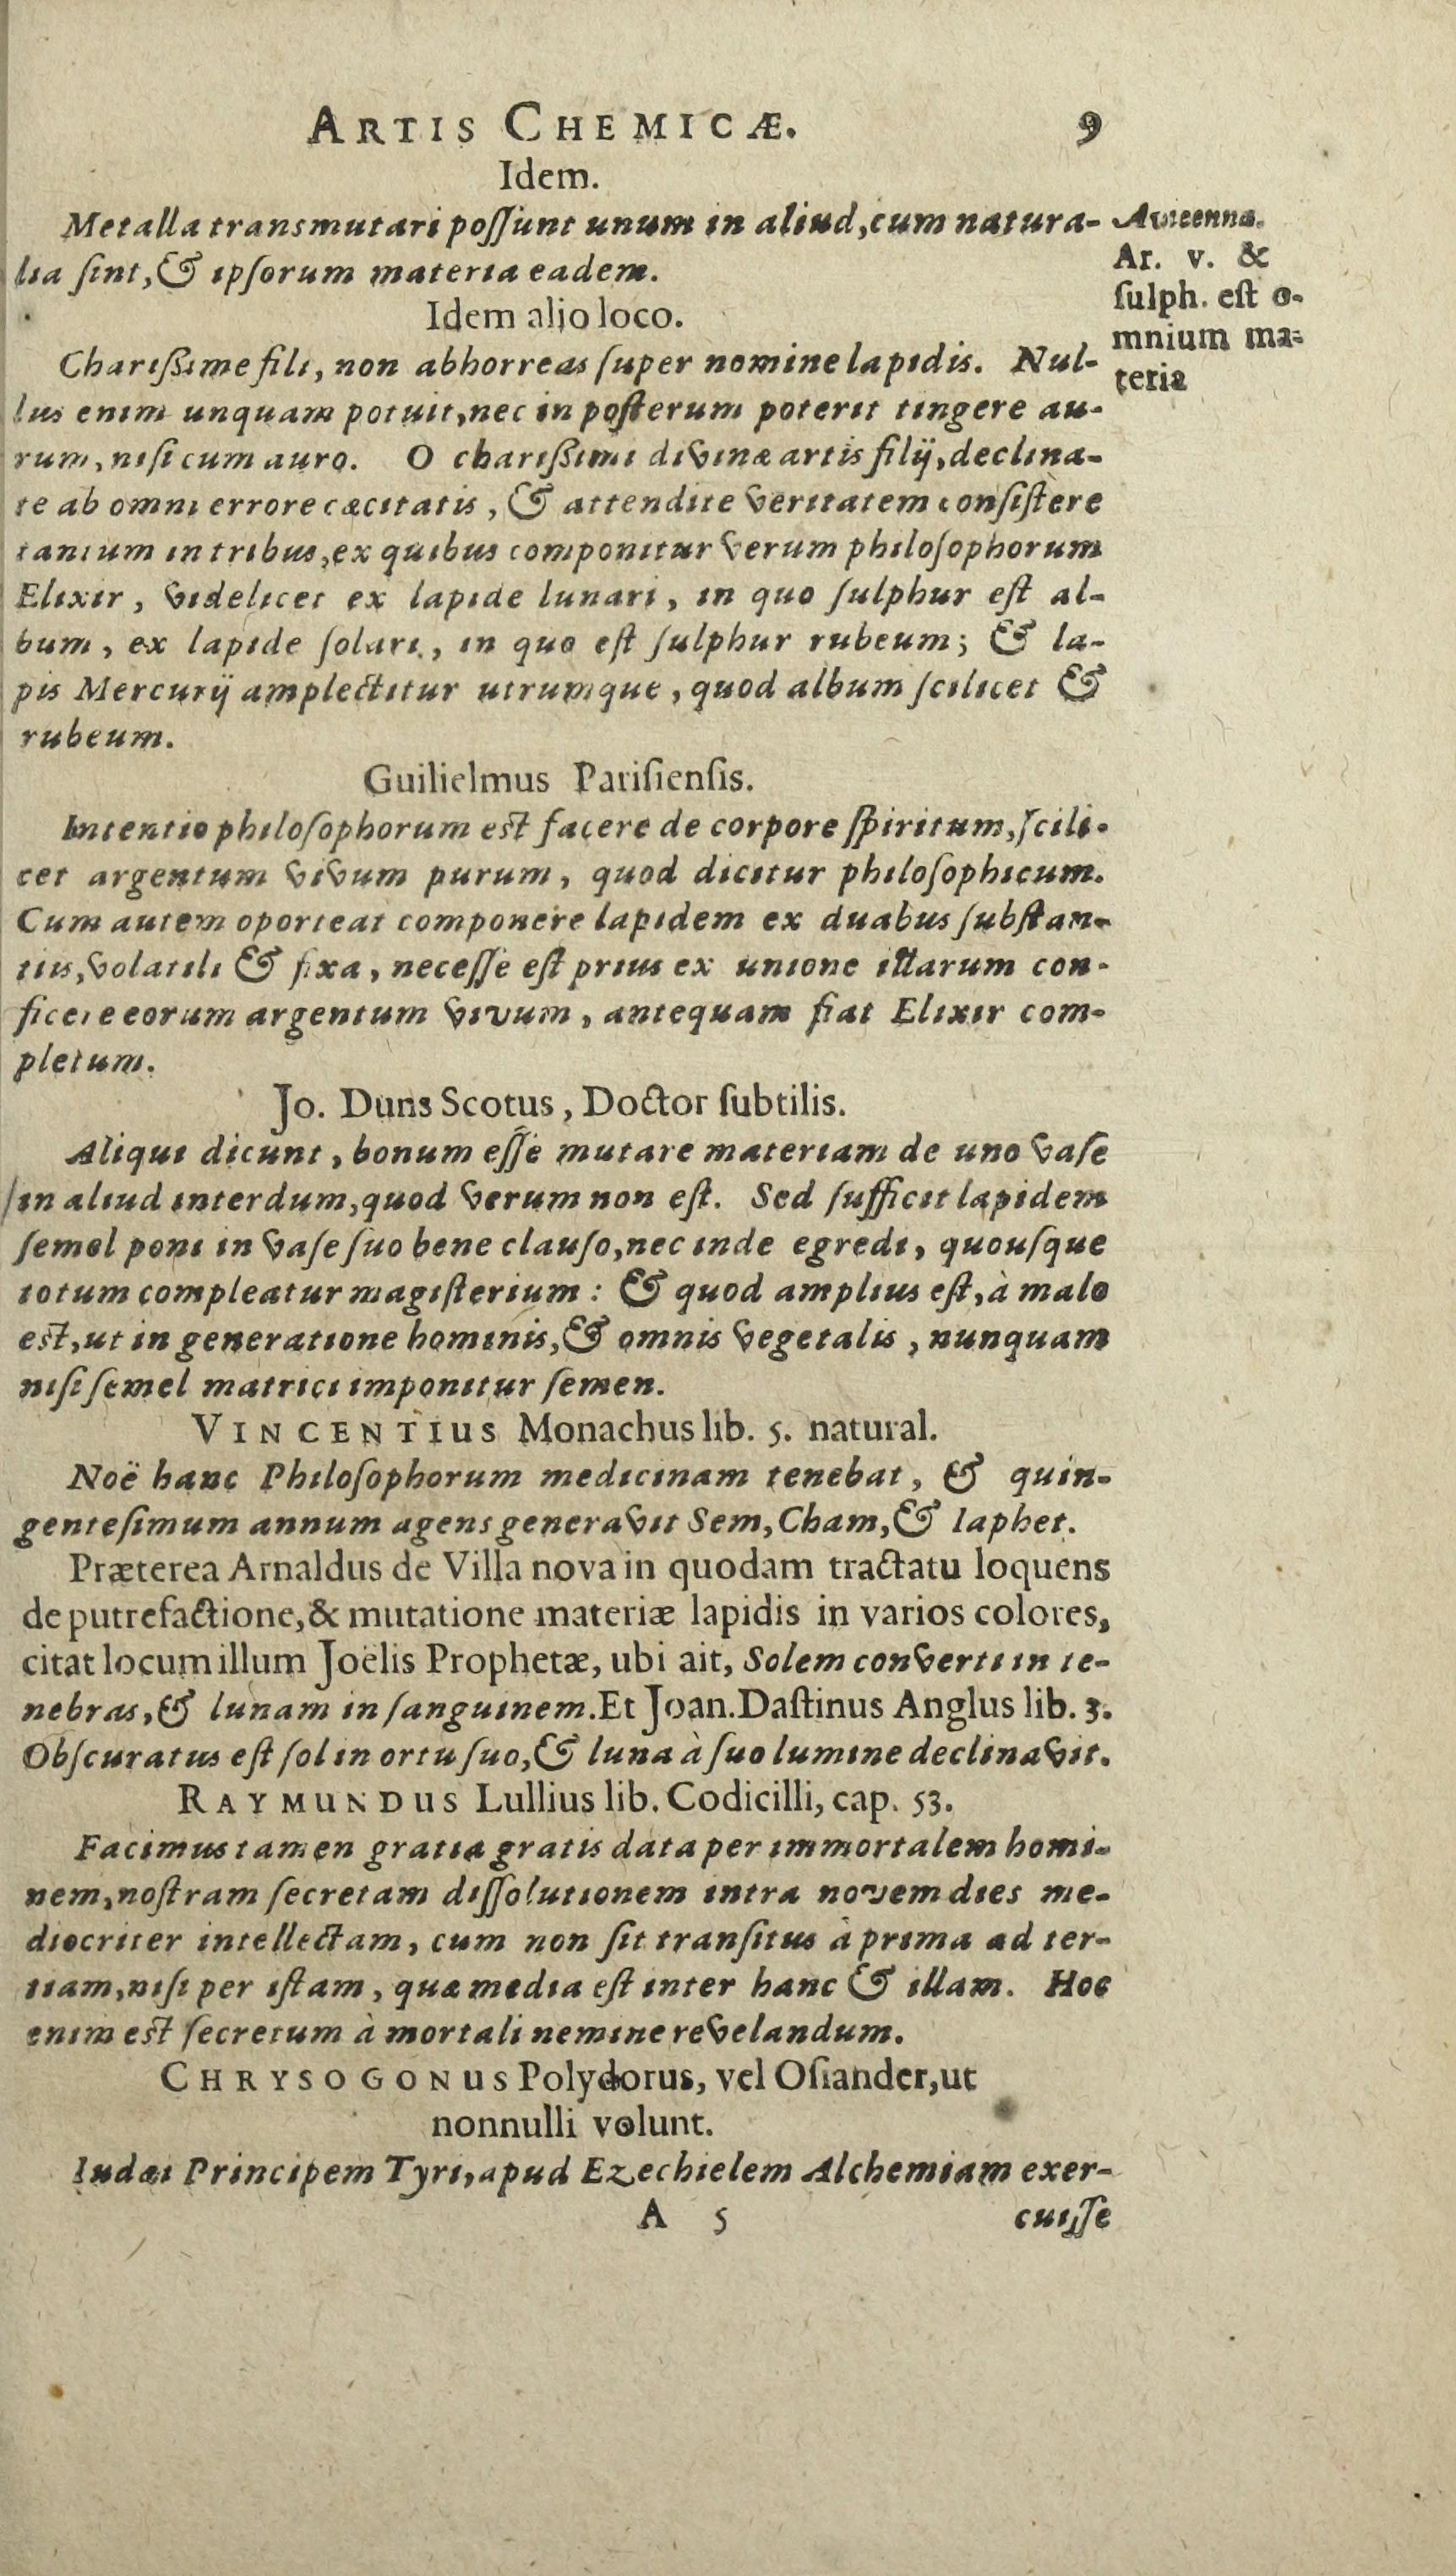 ARTIS CHEMICÆ. 9
Idem.
Metalla transmutari possunt unum in aliud, cum natura-
lia sint, & ipsorum materia eadem.
Avicenna.
Ar. v. &
sulph. est o-
mnium ma-
teria
Idem alio loco.
Charissime fili, non abhorreas super nomine lapidis. Nul-
lus enim unquam potuit, nec in posterum poterit tingere au-
rum, nisi cum auro. O charissimi divinæ artis filij, declina-
te ab omni errore cæcitatis, & attendite veritatem consistere
tantum in tribus, ex quibus componitur verum philosophorum
Elixir, videlicet ex lapide lunari, in quo sulphur est al-
bum, ex lapide solari, in quo est sulphur rubeum; & la-
pis Mercurij amplectitur utrumque, quod album scilicet &
rubeum.
Guilielmus Parisiensis.
Intentio philosophorum est facere de corpore spiritum, scili-
cet argentum vivum purum, quod dicitur philosophicum.
Cum autem oporteat componere lapidem ex duabus substan-
tiis, volatili & fixa, necesse est prius ex unione illarum con-
ficere eorum argentum vivum, antequam fiat Elixir com-
pletum.
Jo. Duns Scotus, Doctor subtilis.
Aliqui dicunt, bonum esse mutare materiam de uno vase
in aliud interdum, quod verum non est. Sed sufficit lapidem
semel poni in vase suo bene clauso, nec inde egredi, quousque
totum compleatur magisterium: & quod amplius est, à malo
est, ut in generatione hominis, & omnis vegetalis, nunquam
nisi semel matrici imponitur semen.
VINCENTIUS Monachus lib. 5. natural.
Noë hanc Philosophorum medicinam tenebat, & quin-
gentesimum annum agens generavit Sem, Cham, & Iaphet.
Præterea Arnaldus de Villa nova in quodam tractatu loquens
de putrefactione, & mutatione materiæ lapidis in varios colores,
citat locum illum Joëlis Prophetæ, ubi ait, Solem converti in te-
nebras, & lunam in sanguinem. Et Joan. Dastinus Anglus lib. 3.
Obscuratus est sol in ortu suo, & luna à suo lumine declinavit.
RAYMUNDUS Lullius lib. Codicilli, cap. 53.
Facimus tamen gratia gratis data per immortalem homi-
nem, nostram secretam dissolutionem intra novem dies me-
diocriter intellectam, cum non sit transitus à prima ad ter-
tiam, nisi per istam, quæ media est inter hanc & illam. Hoc
enim est secretum à mortali nemine revelandum.
CHRYSOGONUS Polydorus, vel Osiander, ut
nonnulli volunt.
Iudæi Principem Tyri, apud Ezechielem Alchemiam exer-
A 5 cuisse